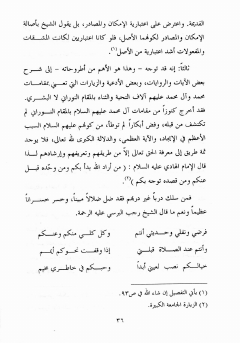 القديمة. واعترض على اختبارية الإمكان والمصادر، بل يقول الشيخ بأصالة
الإمكان والمصادر لكونهما الأصل، فلو كانا اختباريين لكانت المشتقات
والمفعولات أشد اختبارية من الأصل(١).
ثالثاً: إنه قد توجه – وهذا هو الأهم من أطروحاته – إلى شرح
بعض الآيات والروايات، وبعض الأدعية والزيارات التي تعنى بمقامات
محمد وآل محمد عليهم آلاف التحية والثناء بالمقام النوراني لا البشري.
فقد أخرج كنوزاً من مقامات آل محمد عليهم الصلاة والسلام لم
تكتشف من قبله، وفض أبكاراً لم توطأ، من كونهم عليهم السلام السبب
الأعظم في الإيجاد، والآية العظمى، والدلالة الكبرى لله تعالى، فلا يوجد
ثمة طريق إلى معرفة الحق تعالى إلاّ من طريقهم وتعريفهم وإرشادهم لذا
قال الإمام الهادي عليه السلام : ( من أراد الله بدأ بكم ومن وحّده قبل
عنكم ومن قصده توجه بكم )(٢).
فمن سلك درباً غير دربهم فقد ضل ضلالاً مبيناً، وخسر خسراناً
عظيماً ونعم ما قال الشيخ رجب البرسي عليه الرحمة.
فرضي ونفلي وحديثي أنتم وكل كلي منكم وعنكم
وأنتم عند الصلاة قبلتي إذا وقفت نحوكم أيمم
خيالكم نصب لعيني أبداً وحبكم في خاطري مخيم
(١) يأتي التفصيل إن شاء الله في ص٩٣.
(٢) الزيارة الجامعة الكبيرة.
٣٦